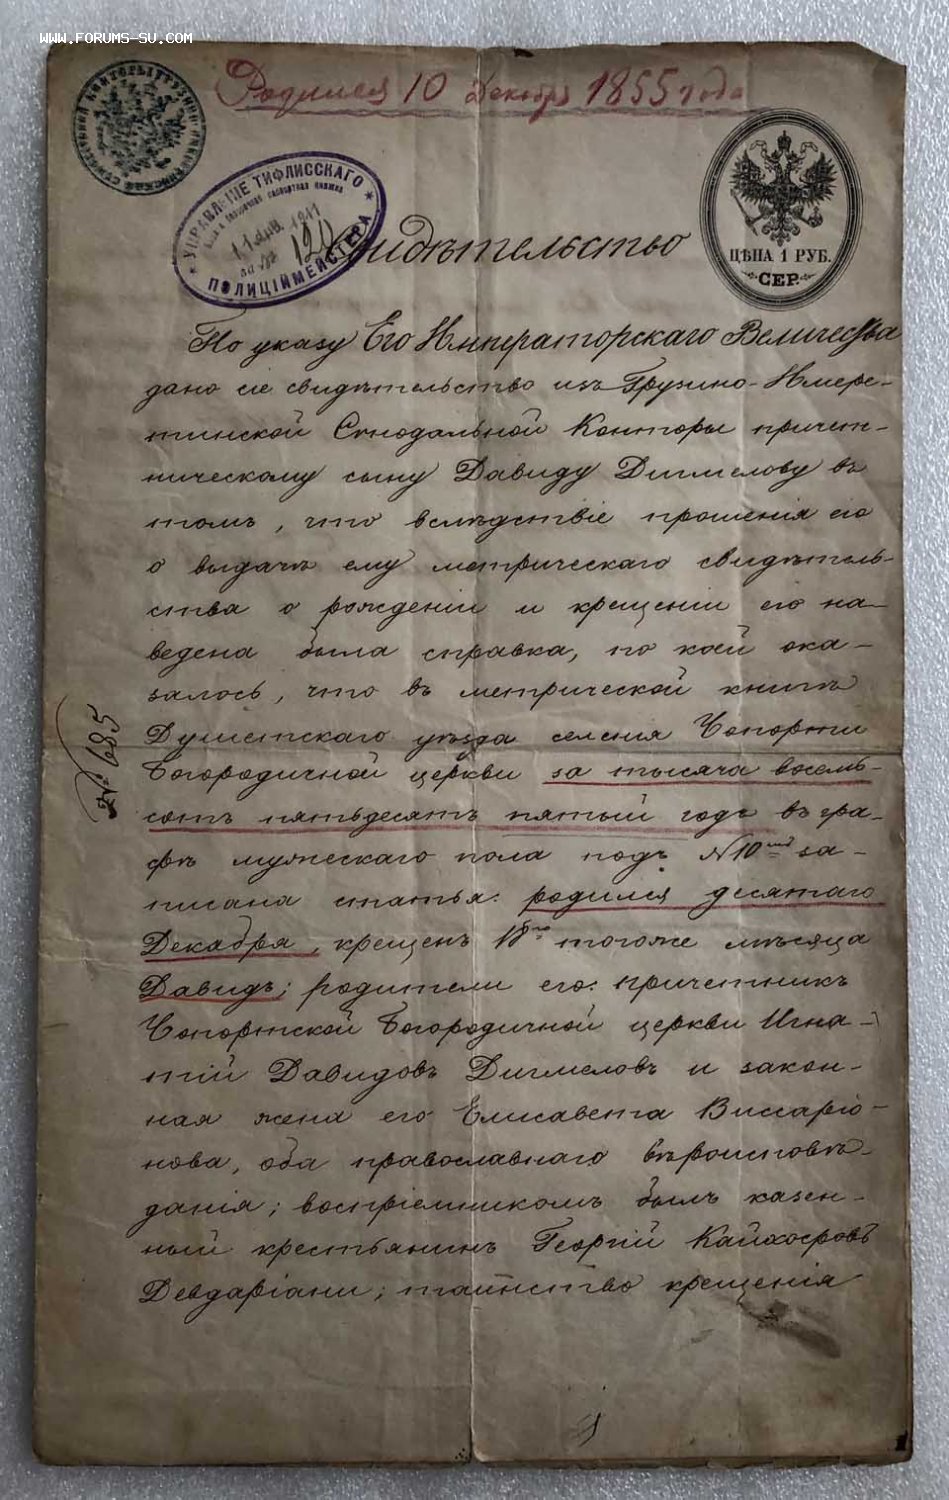 WWW.FORUMS-SU.COM
Родился 10 Декабря 1855 года
УПРАВЛЕНІЕ ТИФЛИССКАГО
паспортная книжка
1911
за № 120
ПОЛИЦІЙМЕЙСТЕРА
ЦѢНА 1 РУБ.
СЕР.
Свидѣтельство
По указу Его Императорскаго Величества
дано сіе свидѣтельство изъ Грузино-Имере-
тинской Синодальной Конторы причет-
ническому сыну Давиду Дигмелову въ
томъ, что вслѣдствіе прошенія его
о выдачѣ ему метрическаго свидѣтель-
ства о рожденіи и крещеніи его на-
ведена была справка, по коей ока-
залось, что въ метрической книгѣ
Душетскаго уѣзда селенія Чопорти
Богородичной церкви за тысяча восемь-
сотъ пятьдесятъ пятый годъ въ гра-
фѣ мужескаго пола подъ №10мъ за-
писана статья: родился десятаго
Декабря, крещенъ 18го тогоже мѣсяца
Давидъ; родители его: причетникъ
Чопортской Богородичной церкви Игна-
тій Давидовъ Дигмеловъ и закон-
ная жена его Елисавета Виссаріо-
нова, оба православнаго вѣроисповѣ-
данія; воспріемникомъ былъ казен-
ный крестьянинъ Георгій Кайхосровъ
Девдаріани; таинство крещенія
№ 685